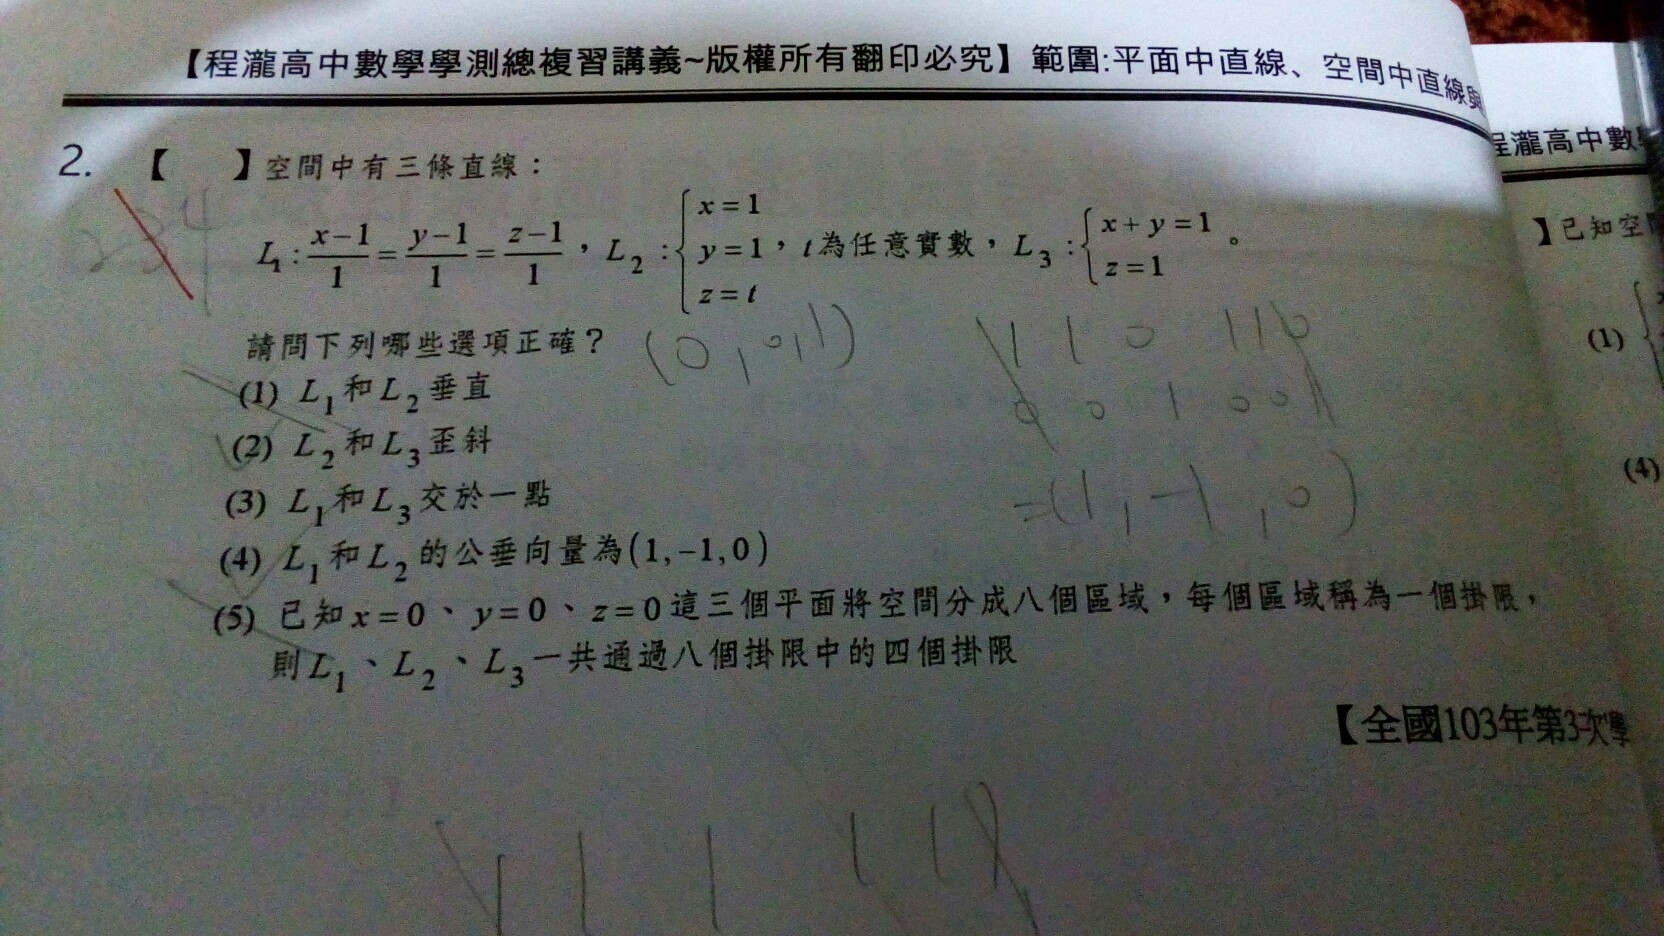 【程瀧高中數學學測總複習講義~版權所有翻印必究】範圍:平面中直線、空間中直線與
2. 【 】空間中有三條直線：
L₁ : (x−1)/1 = (y−1)/1 = (z−1)/1 ， L₂ : { x=1 y=1 z=t ， t為任意實數， L₃ : { x+y=1 z=1 。
請問下列哪些選項正確？
(1) L₁和L₂垂直
(2) L₂和L₃歪斜
(3) L₁和L₃交於一點
(4) L₁和L₂的公垂向量為(1,−1,0)
(5) 已知x=0、y=0、z=0這三個平面將空間分成八個區域，每個區域稱為一個掛限，
則L₁、L₂、L₃一共通過八個掛限中的四個掛限
【全國103年第3次學
234
(0,0,1)
1 1 0 1 1 0
0 0 1 0 0 1
=(1,-1,0)
1 1 1 1 1
程瀧高中數
】已知空
(1)
(4)